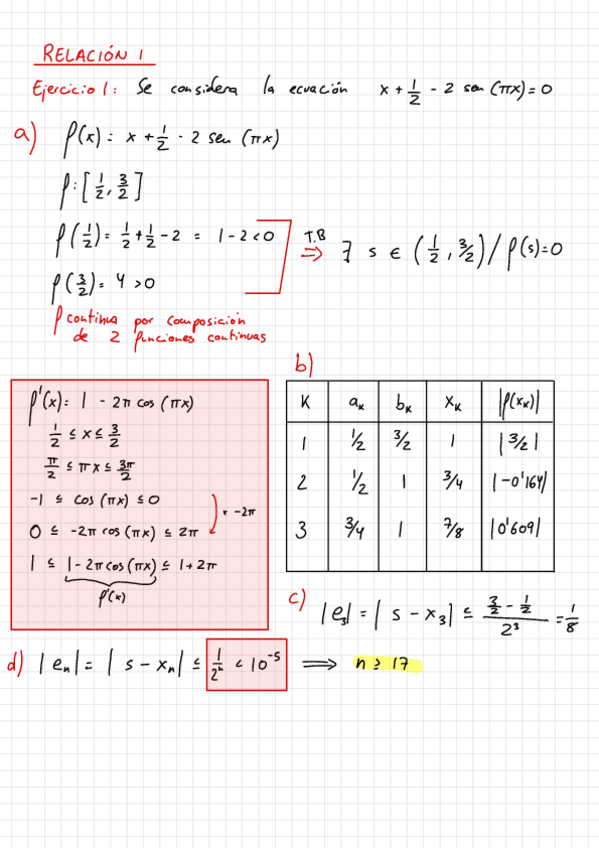 RELACIÓN 1
Ejercicio 1: Se considera la ecuación x + 1/2 - 2 sen (πx) = 0
a) f(x) = x + 1/2 - 2 sen (πx)
f: [1/2, 3/2]
f(1/2) = 1/2 + 1/2 - 2 = 1 - 2 < 0
f(3/2) = 4 > 0
T.B ⇒ ∃ s ∈ (1/2, 3/2) / f(s) = 0
f continua por composición
de 2 funciones continuas
f'(x) = 1 - 2π cos (πx)
1/2 ≤ x ≤ 3/2
π/2 ≤ πx ≤ 3π/2
-1 ≤ cos (πx) ≤ 0
· -2π
0 ≤ -2π cos (πx) ≤ 2π
1 ≤ 1 - 2π cos (πx) ≤ 1 + 2π
f'(x)
b)
K aₖ bₖ xₖ |f(xₖ)|
1 1/2 3/2 1 |3/2|
2 1/2 1 3/4 |-0'164|
3 3/4 1 7/8 |0'609|
c) |e₃| = | s - x₃| ≤ (3/2 - 1/2)/2³ = 1/8
d) |eₙ| = | s - xₙ| ≤ 1/2ⁿ < 10⁻⁵ ⟹ n ≥ 17